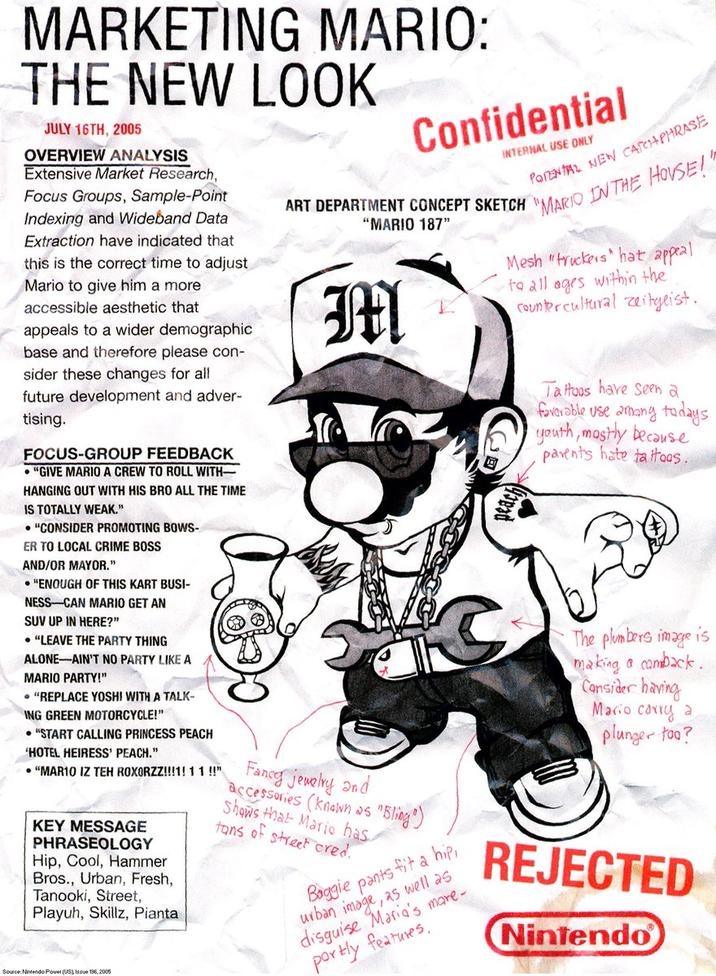 MARKETING MARIO:
THE NEW LOOK
JULY 16TH, 2005
Confidential
INTERNAL USE ONLY
POTENTIAL NEW CATCHPHRASE
"MARIO IN THE HOUSE!"
OVERVIEW ANALYSIS
Extensive Market Research,
Focus Groups, Sample-Point
Indexing and Wideband Data
Extraction have indicated that
this is the correct time to adjust
Mario to give him a more
accessible aesthetic that
appeals to a wider demographic
base and therefore please con-
sider these changes for all
future development and adver-
tising.
ART DEPARTMENT CONCEPT SKETCH
"MARIO 187"
M
Mesh "truckers" hat appeal
to all ages within the
countercultural zeitgeist.
Tattoos have seen a
favorable use among todays
youth, mostly because
parents hate tattoos.
peach
FOCUS-GROUP FEEDBACK
• "GIVE MARIO A CREW TO ROLL WITH—
HANGING OUT WITH HIS BRO ALL THE TIME
IS TOTALLY WEAK."
• "CONSIDER PROMOTING BOWS-
ER TO LOCAL CRIME BOSS
AND/OR MAYOR."
• "ENOUGH OF THIS KART BUSI-
NESS—CAN MARIO GET AN
SUV UP IN HERE?"
• "LEAVE THE PARTY THING
ALONE—AIN'T NO PARTY LIKE A
MARIO PARTY!"
• "REPLACE YOSHI WITH A TALK-
ING GREEN MOTORCYCLE!"
• "START CALLING PRINCESS PEACH
'HOTEL HEIRESS' PEACH."
• "MAR1O IZ TEH ROXORZZ!!!1! 1 1 !!"
The plumbers image is
making a comback.
Consider having
Mario carry a
plunger too?
Fancy jewelry and
accessories (known as "Bling")
shows that Mario has
tons of street cred.
Baggie pants fit a hip,
urban image, as well as
disguise Mario's more-
portly features.
KEY MESSAGE
PHRASEOLOGY
Hip, Cool, Hammer
Bros., Urban, Fresh,
Tanooki, Street,
Playuh, Skillz, Pianta
REJECTED
Nintendo®
Source: Nintendo Power (US), Issue 196, 2005